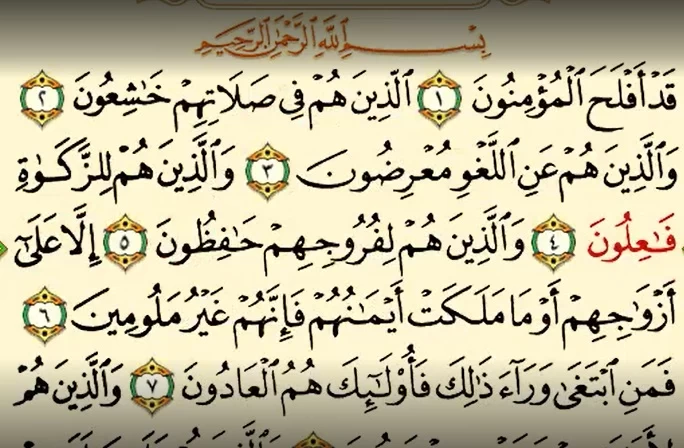 بِسْمِ ٱللَّهِ ٱلرَّحْمَٰنِ ٱلرَّحِيمِ
قَدْ أَفْلَحَ ٱلْمُؤْمِنُونَ ١ ٱلَّذِينَ هُمْ فِى صَلَاتِهِمْ خَٰشِعُونَ ٢
وَٱلَّذِينَ هُمْ عَنِ ٱللَّغْوِ مُعْرِضُونَ ٣ وَٱلَّذِينَ هُمْ لِلزَّكَوٰةِ
فَٰعِلُونَ ٤ وَٱلَّذِينَ هُمْ لِفُرُوجِهِمْ حَٰفِظُونَ ٥ إِلَّا عَلَىٰٓ
أَزْوَٰجِهِمْ أَوْ مَا مَلَكَتْ أَيْمَٰنُهُمْ فَإِنَّهُمْ غَيْرُ مَلُومِينَ ٦
فَمَنِ ٱبْتَغَىٰ وَرَآءَ ذَٰلِكَ فَأُو۟لَٰٓئِكَ هُمُ ٱلْعَادُونَ ٧ وَٱلَّذِينَ هُمْ